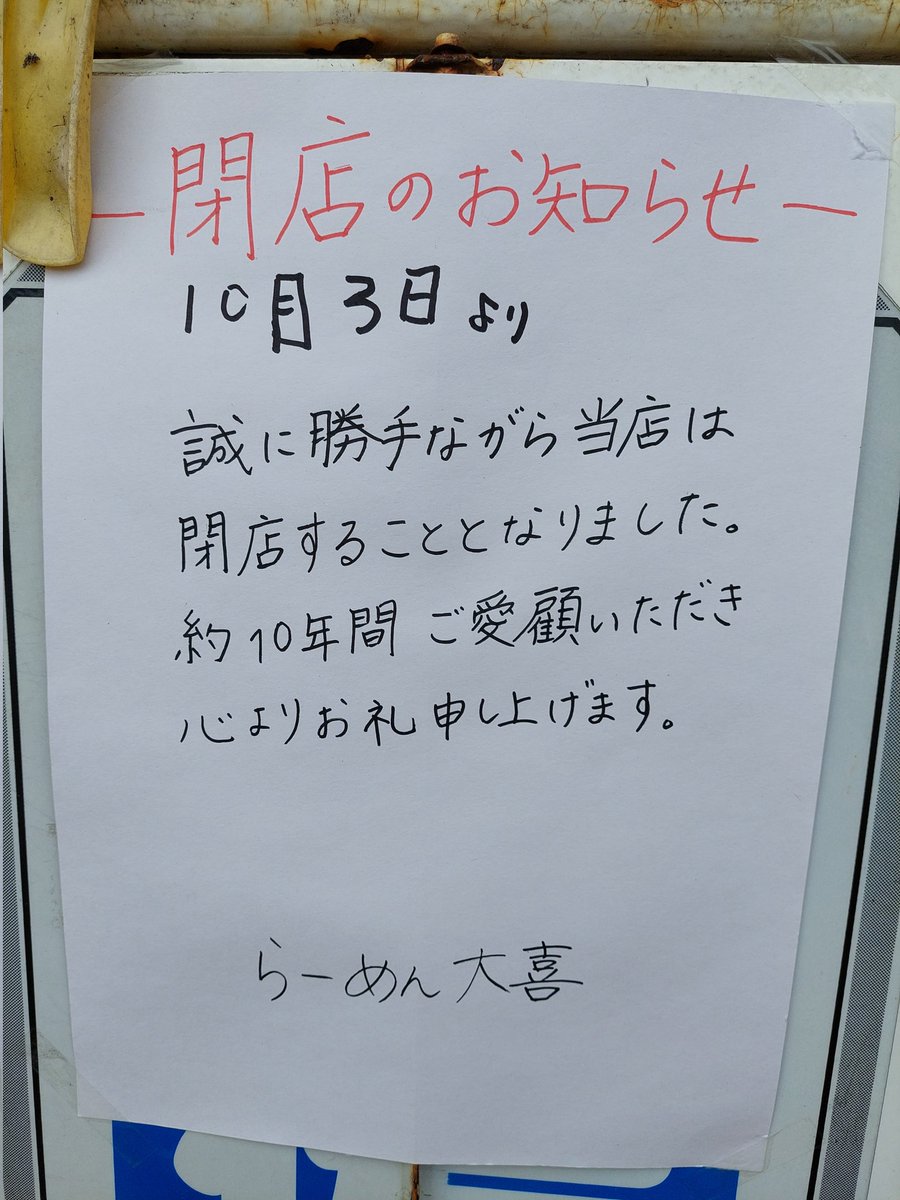 ー閉店のお知らせー
10月3日より
誠に勝手ながら当店は
閉店することとなりました。
約10年間ご愛顧いただき
心よりお礼申し上げます。
らーめん大喜